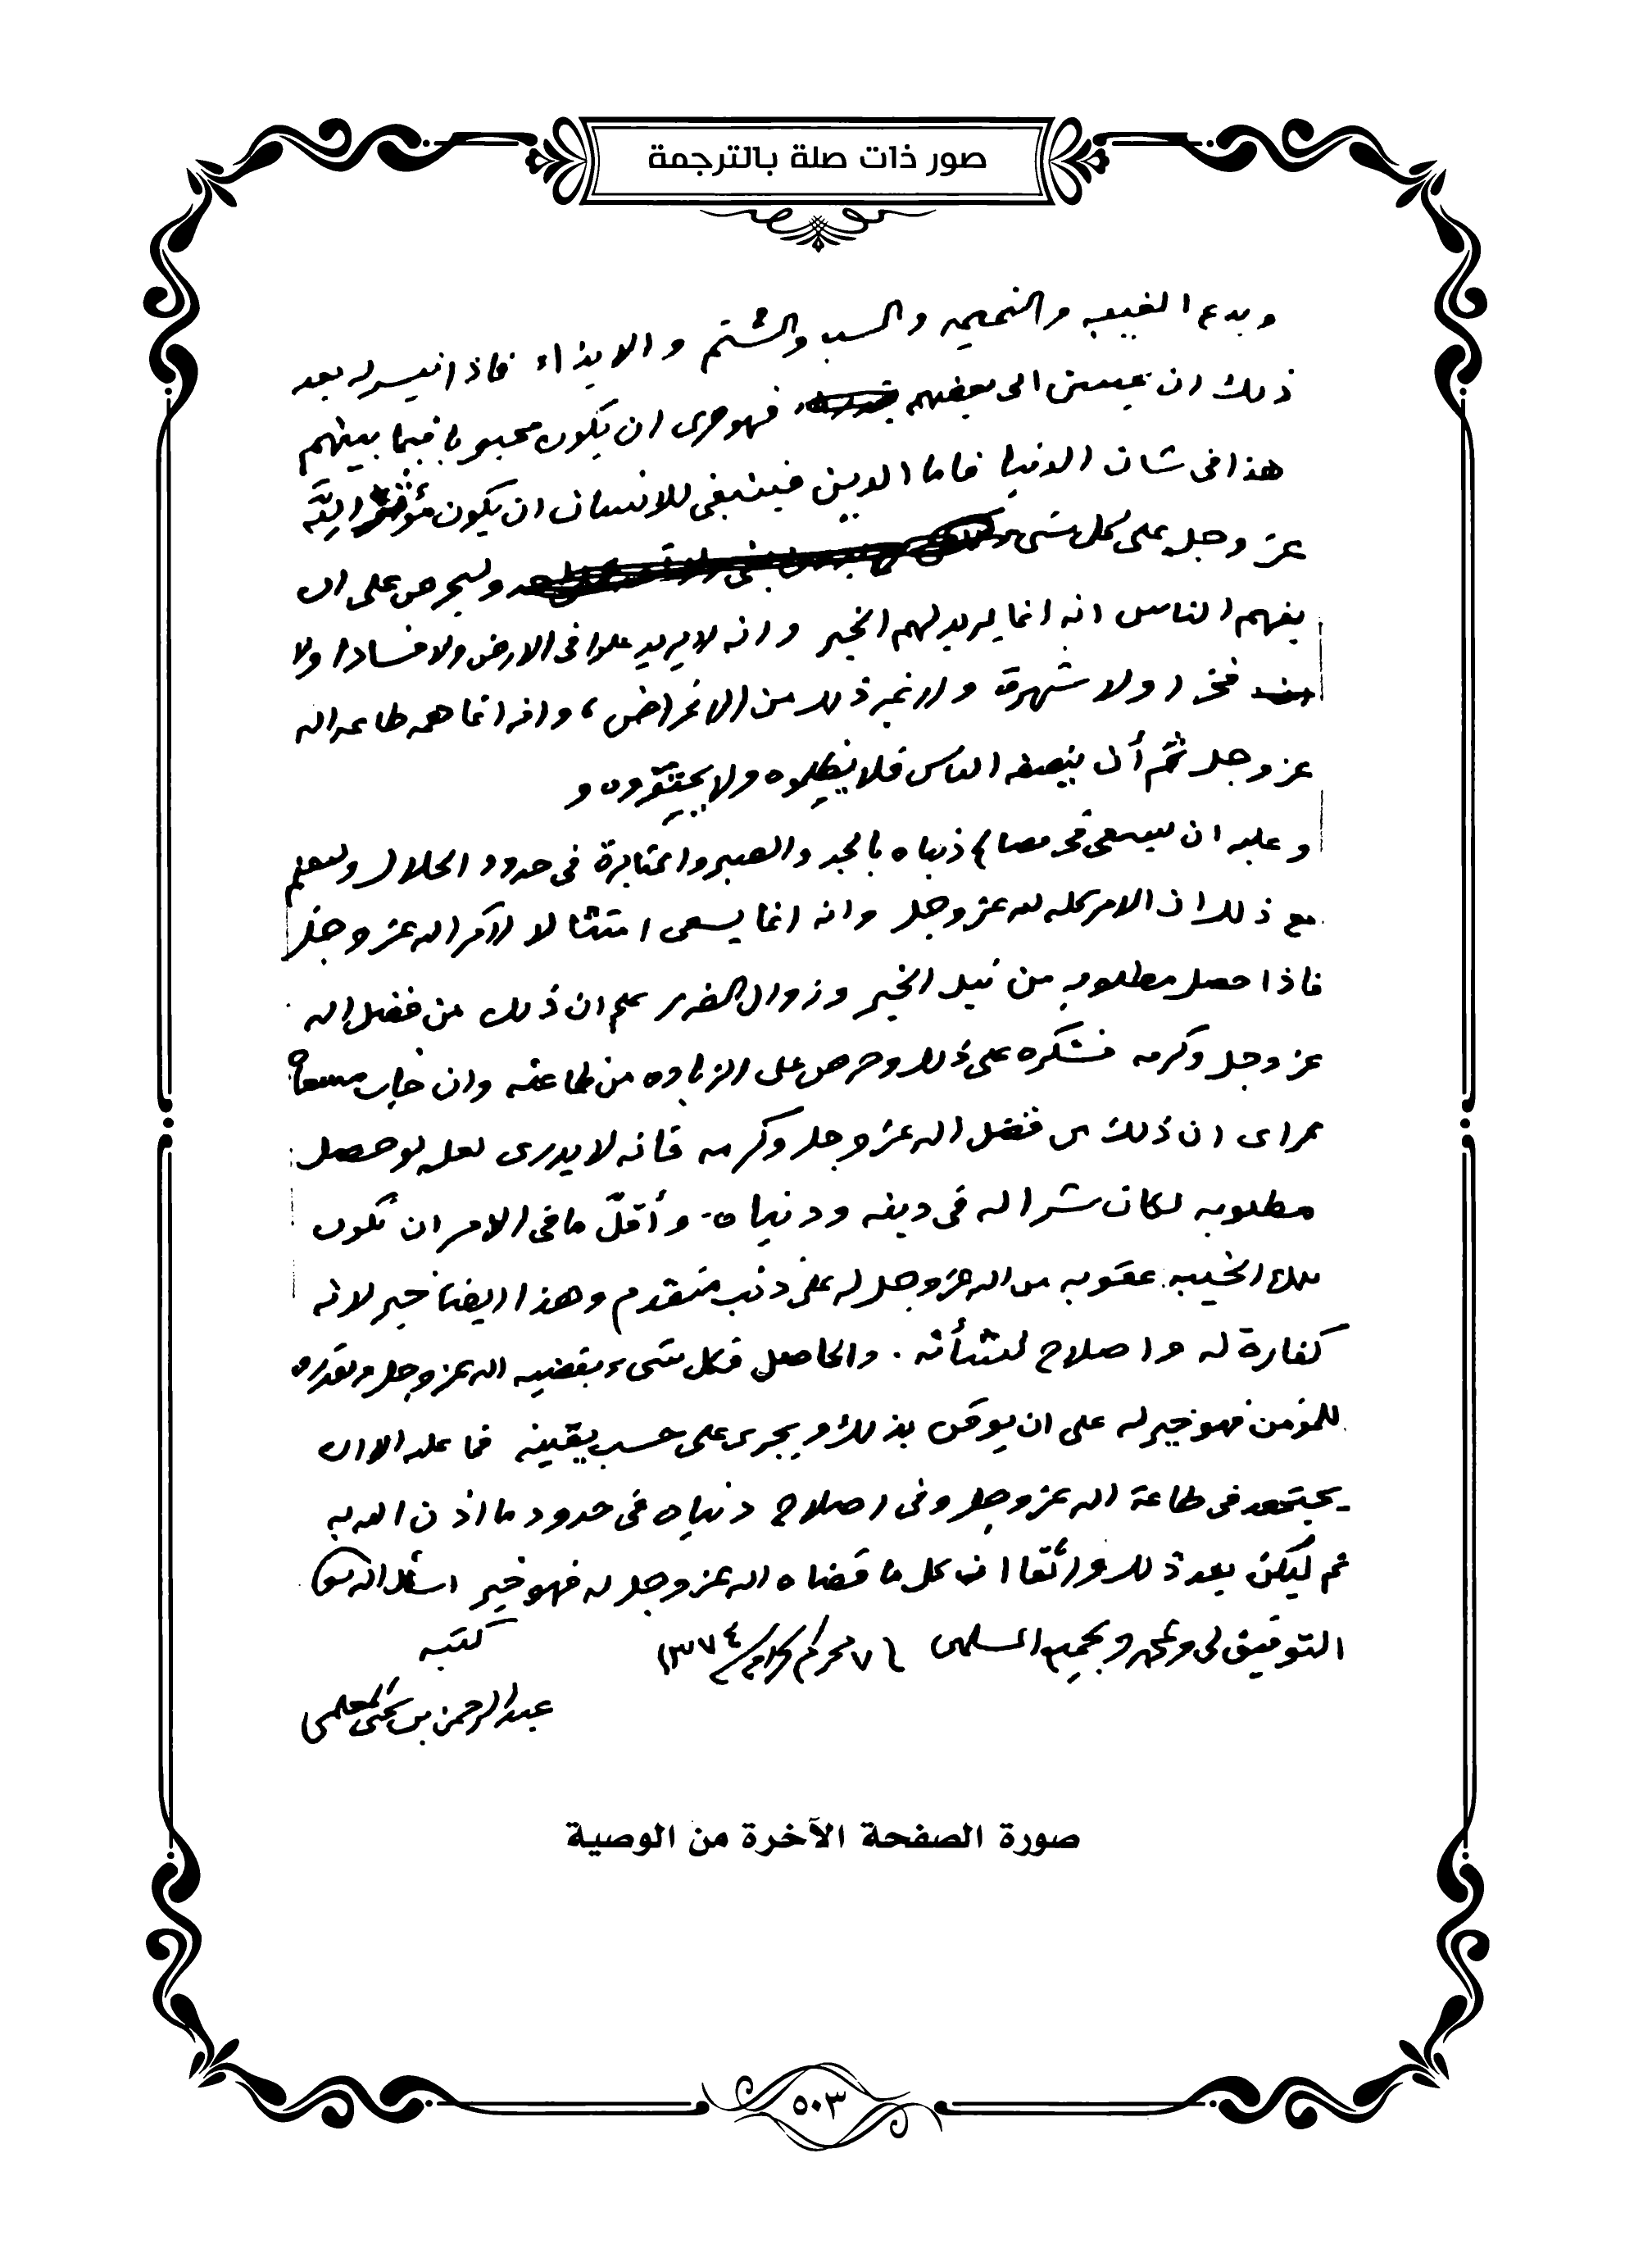 صور ذات صلة بالترجمة
ويدع الغيبه والنميمه والسب والشتم والايذاء فاذا تيسر له بعد
ذلك ان يحسن الى بعضهم فهو حرى ان يكون محبوبا فيما بينهم
هذا فى شان الدنيا فاما الدين فينبغى للانسان ان يكون مؤثرا لله
عز وجل على كل شىء وليحرص على ان
يفهم الناس انه انما يريد لهم الخير وانه لا يريد علوا فى الارض ولا فسادا ولا
فخرا ولا شهرة ولا غير ذلك من الاغراض، وانه انما همه طاعه الله
عز وجل ثم أن ينصفه الناس فلا يظلموه ولا يحتقروه و
وعليه ان يسعى فى مصالح دنياه بالجد والصبر والمثابرة فى حدود الحلال وليعلم
مع ذلك ان الامر كله لله عز وجل وانه انما يسعى امتثالا لأمر الله عز وجل
فاذا حصل مطلوبه من نيل الخير وزوال الضرر علم ان ذلك من فضل الله
عز وجل وكرمه فشكره على ذلك وحرص على الزياده من طاعته وان خاب مسعاه
راى ان ذلك من فضل الله عز وجل وكرمه فانه لا يدرى لعله لو حصل
مطلوبه لكان شرا له فى دينه ودنياه. وأقلّ ما فى الامر ان تكون
تلك الخيبه عقوبه من الله عز وجل له على ذنب متقدم وهذا ايضا خير لانه
كفارة له واصلاح لشأنه . والحاصل فكل شىء يقضيه الله عز وجل ويقدره
للمؤمن فهو خير له على ان يوقن بذلك ويجرى على حسب يقينه فما عليه الا ان
يجتهد فى طاعة الله عز وجل وفى اصلاح دنياه فى حدود ما اذن الله به
ثم ليكن بعد ذلك واثقا ان كل ما قضاه الله عز وجل له فهو خير اسأل الله
التوفيق لى ولجميع المسلمين ٧ محرم الحرام ١٣٧٤
كتبه
عبد الرحمن بن يحيى المعلمى
صورة الصفحة الآخرة من الوصية
٥٠٣